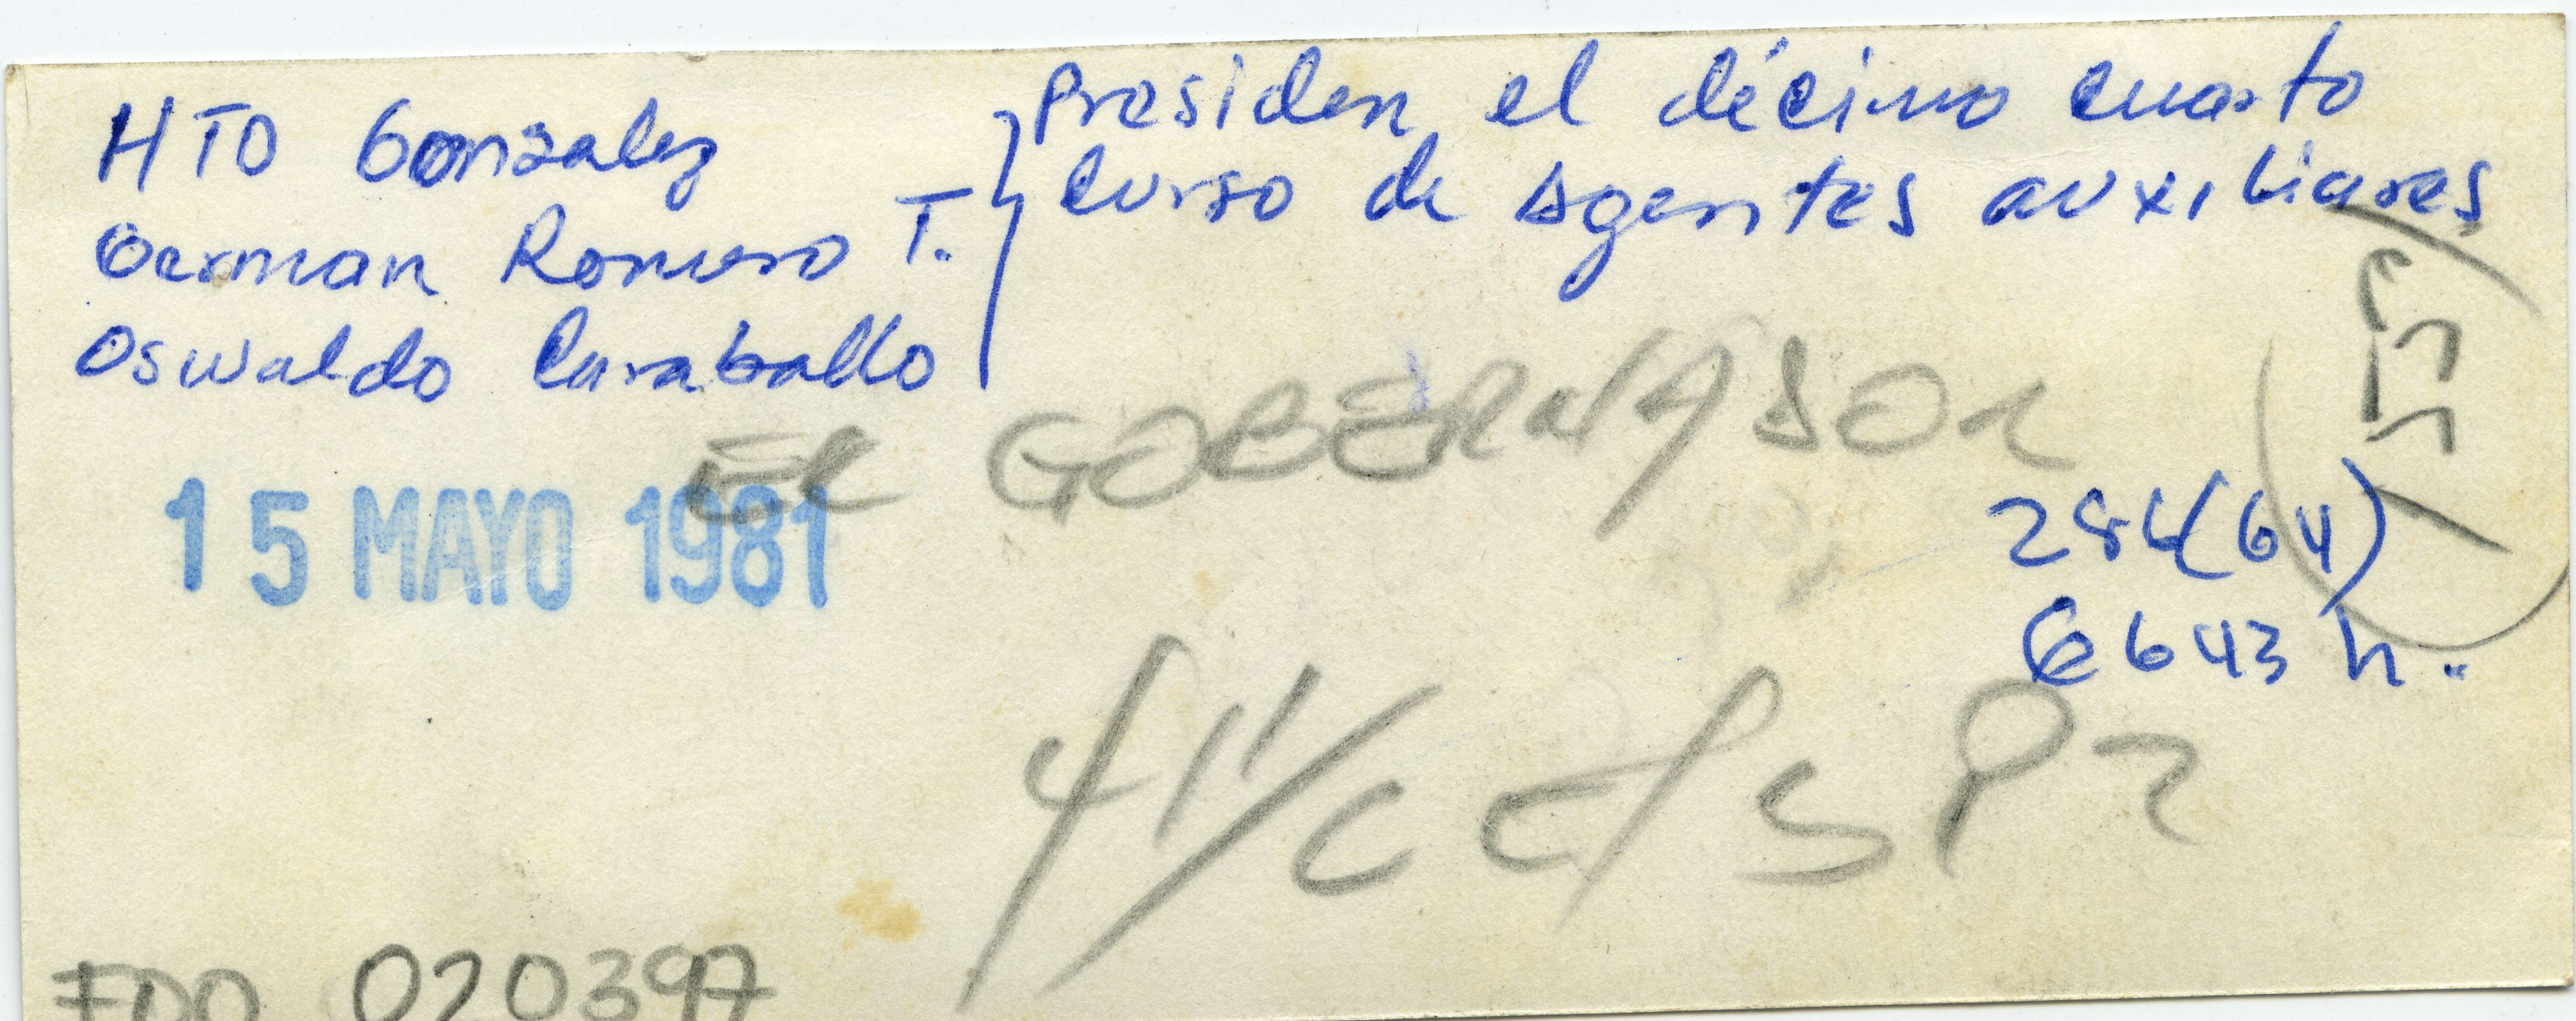 HTO Gonzalez
German Romero T.
Oswaldo Caraballo
Presiden el décimo cuarto
Curso de Agentes auxiliares
EL GOBERNADOR
15 MAYO 1981
284(64)
6643 h..
FDO 020397